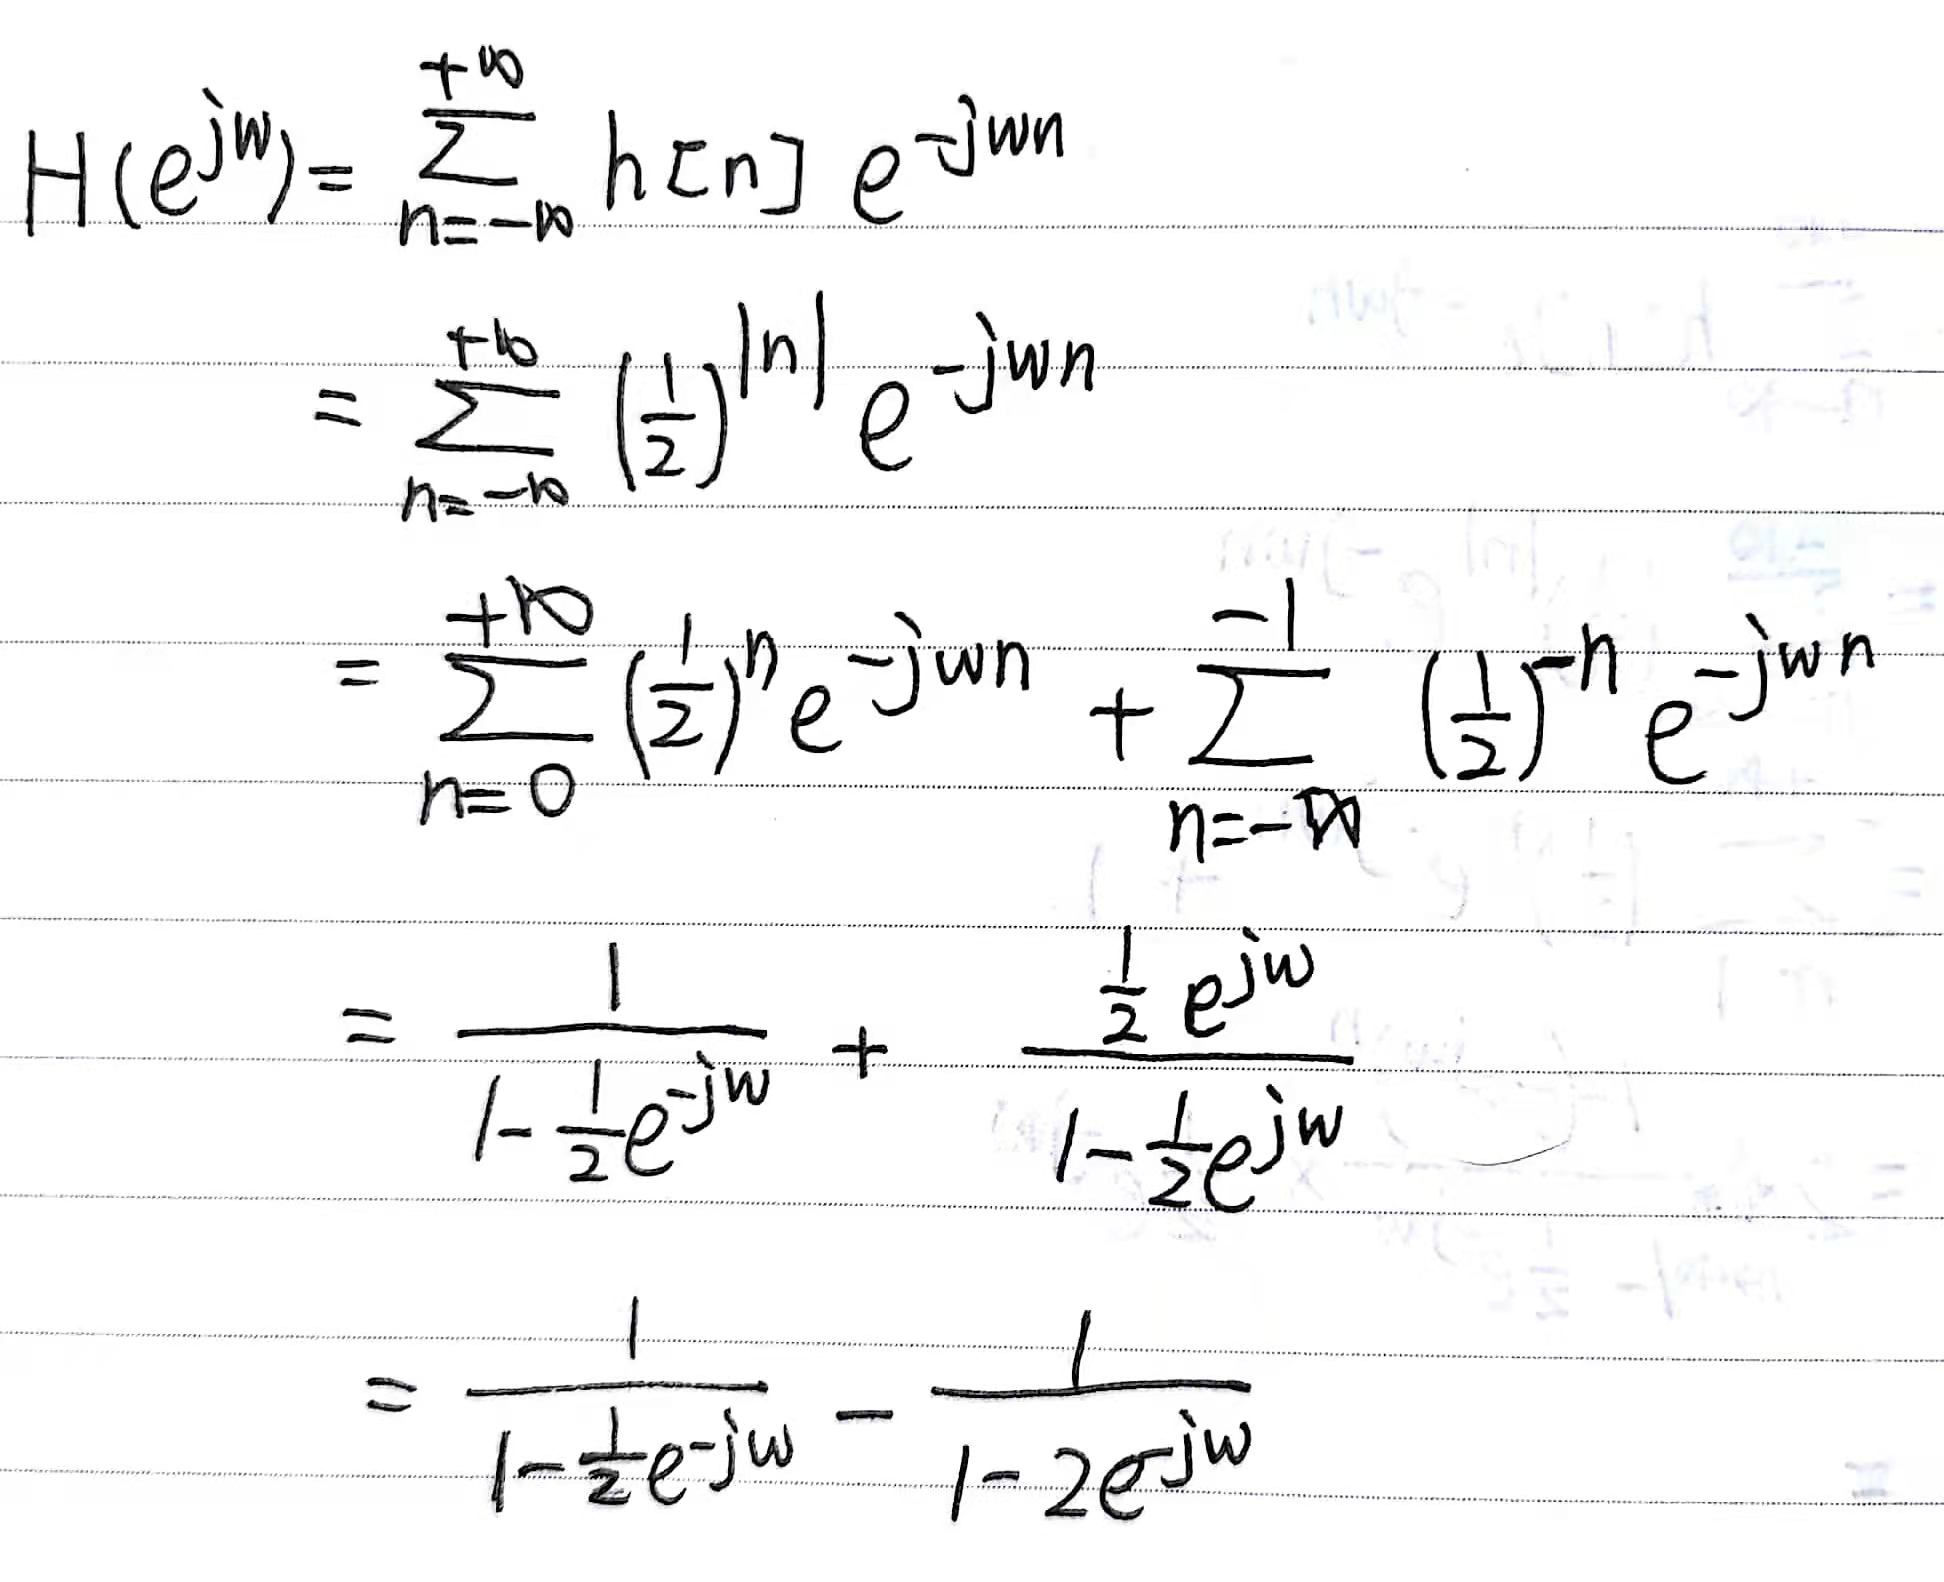 H(e^{jω}) = \sum_{n=-∞}^{+∞} h[n] e^{-jωn}
= \sum_{n=-∞}^{+∞} (\frac{1}{2})^{|n|} e^{-jωn}
= \sum_{n=0}^{+∞} (\frac{1}{2})^{n} e^{-jωn} + \sum_{n=-∞}^{-1} (\frac{1}{2})^{-n} e^{-jωn}
= \frac{1}{1-\frac{1}{2}e^{-jω}} + \frac{\frac{1}{2}e^{jω}}{1-\frac{1}{2}e^{jω}}
= \frac{1}{1-\frac{1}{2}e^{-jω}} - \frac{1}{1-2e^{-jω}}